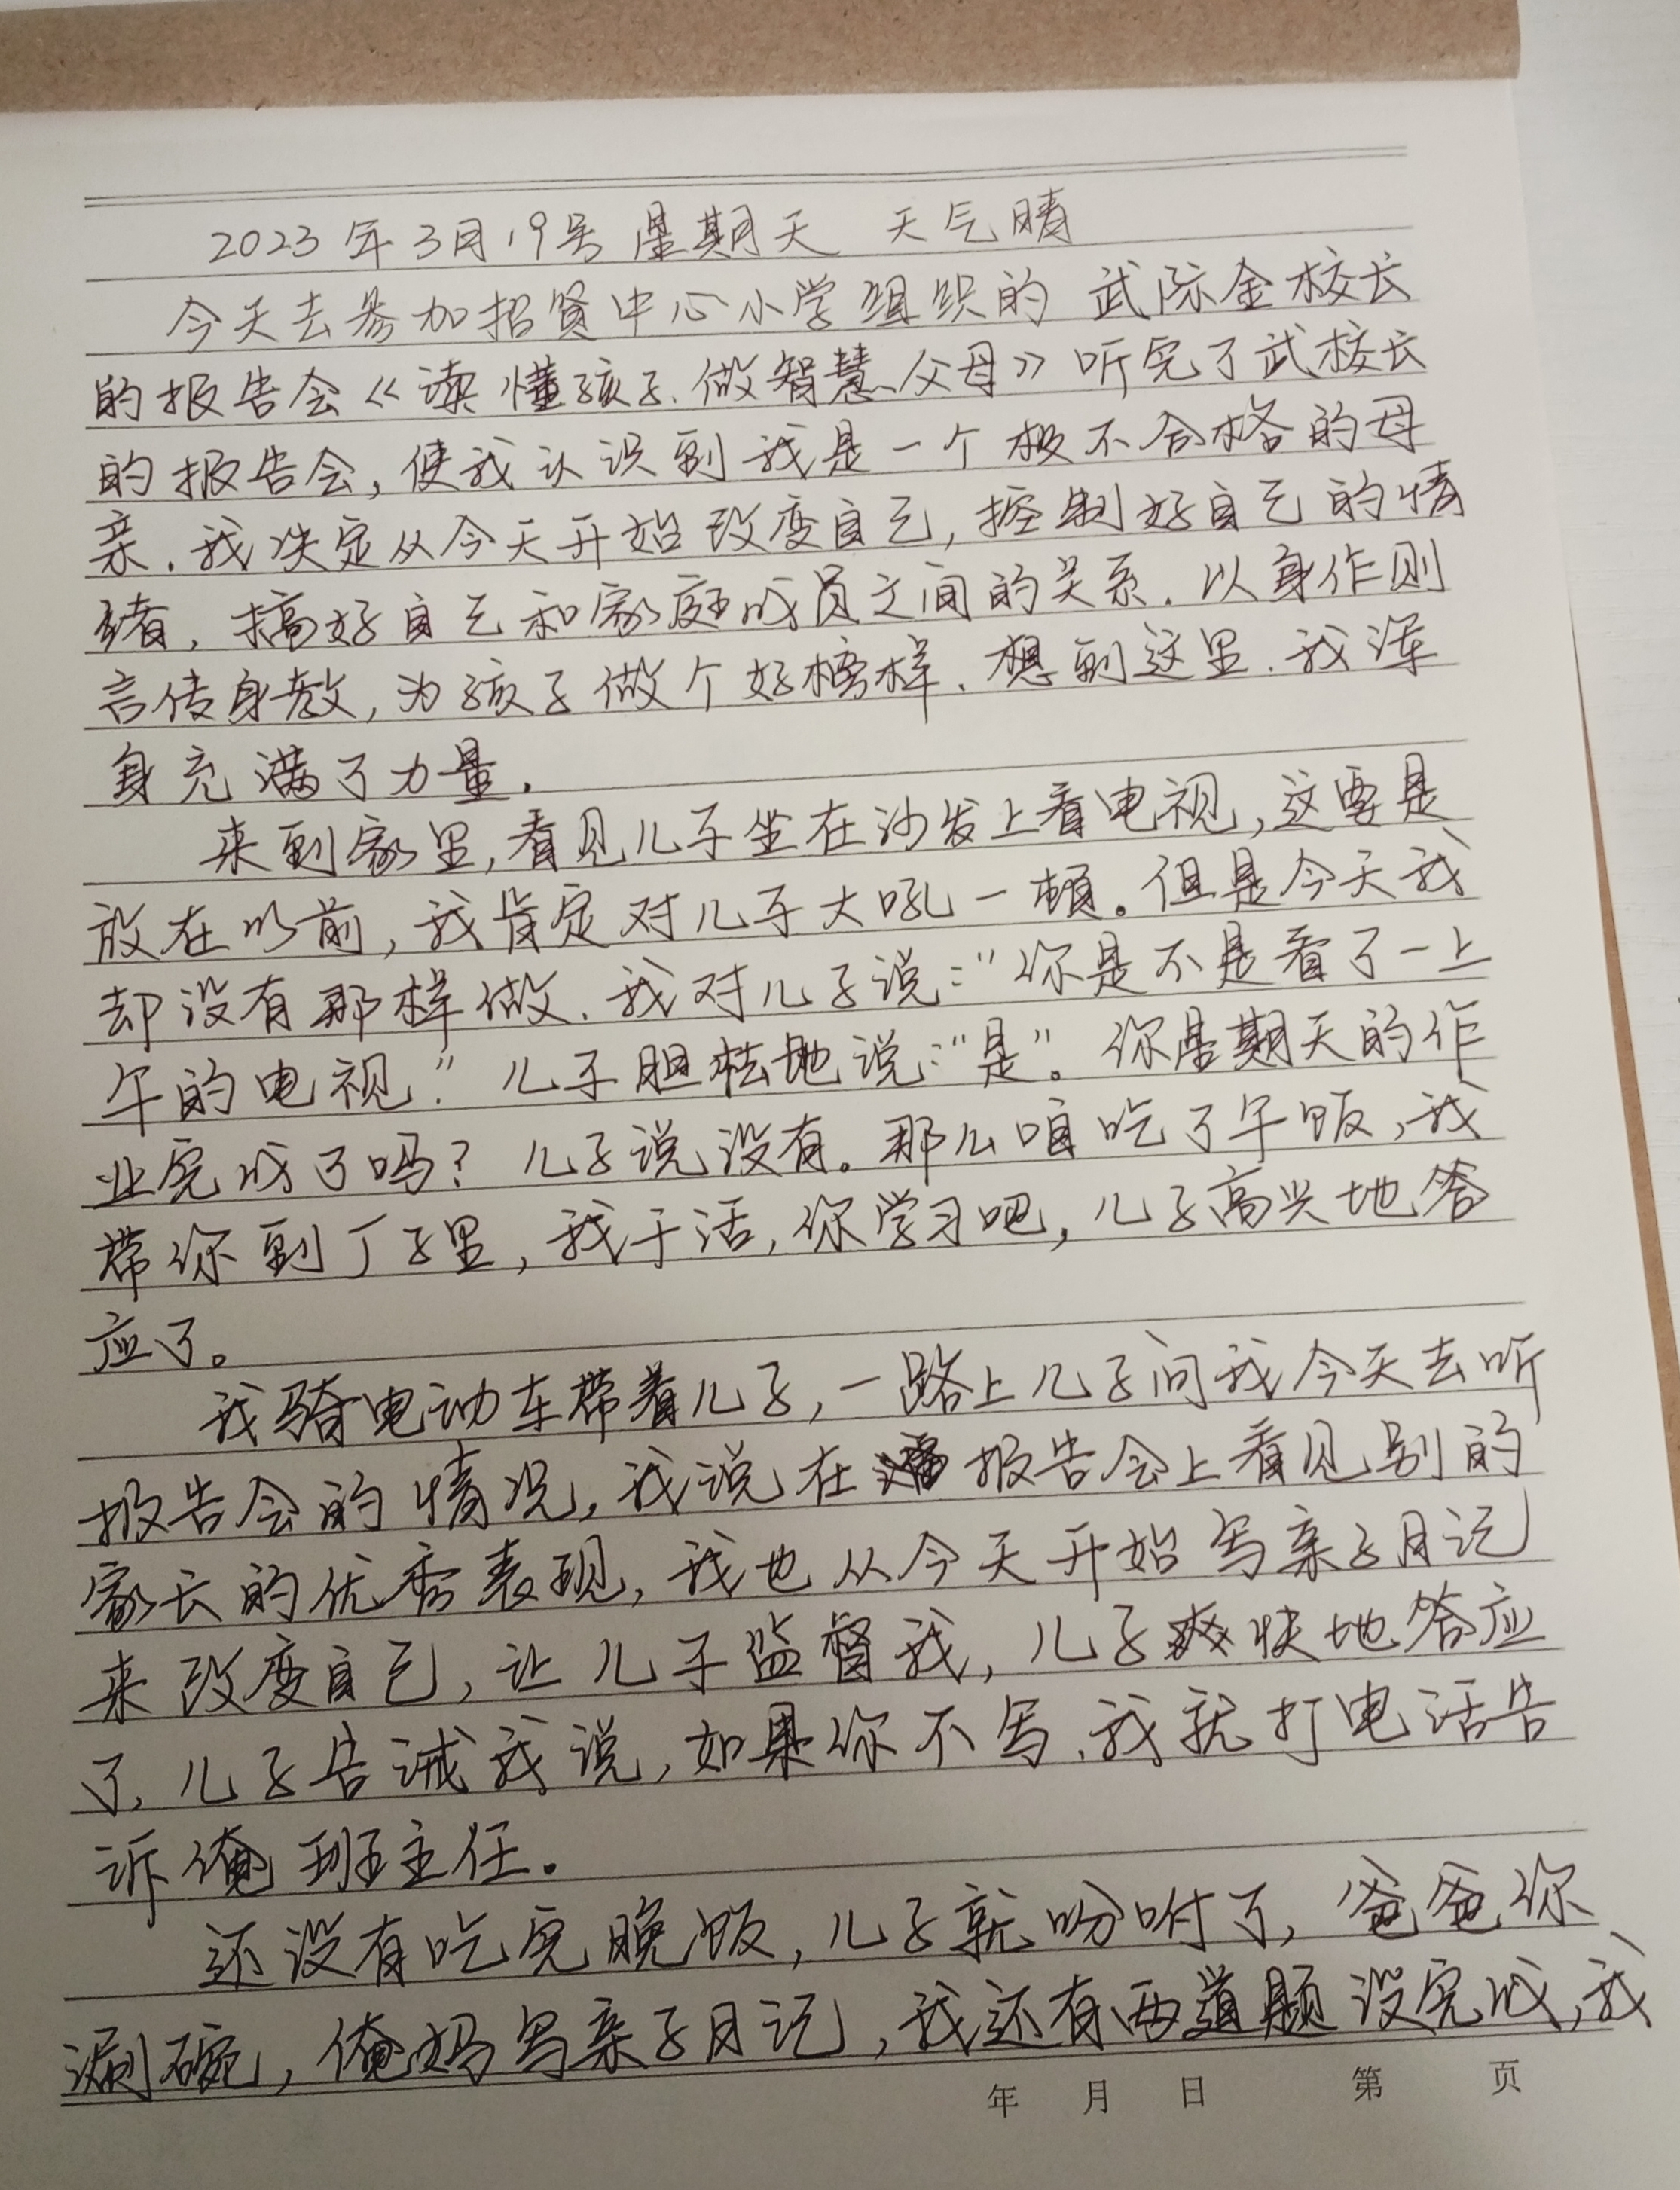 2023年3月19号 星期天 天气晴
今天去参加招贤中心小学组织的 武际金校长
的报告会《读懂孩子.做智慧父母》听完了武校长
的报告会,使我认识到我是一个极不合格的母
亲.我决定从今天开始改变自己,控制好自己的情
绪,搞好自己和家庭成员之间的关系.以身作则
言传身教,为孩子做个好榜样.想到这里.我浑
身充满了力量.
来到家里,看见儿子坐在沙发上看电视,这要是
放在以前,我肯定对儿子大吼一顿。但是今天我
却没有那样做.我对儿子说:"你是不是看了一上
午的电视?"儿子胆怯地说:"是"。你星期天的作
业完成了吗?儿子说没有。那么咱吃了午饭,我
带你到厂子里,我干活,你学习吧,儿子高兴地答
应了。
我骑电动车带着儿子,一路上儿子问我今天去听
报告会的情况,我说在报告会上看见别的
家长的优秀表现,我也从今天开始写亲子月记
来改变自己,让儿子监督我,儿子爽快地答应
了,儿子告诫我说,如果你不写.我就打电话告
诉俺班主任.
还没有吃完晚饭,儿子就吩咐了,爸爸你
涮碗,俺妈写亲子月记,我还有两道题没完成,我
年 月 日 第 页